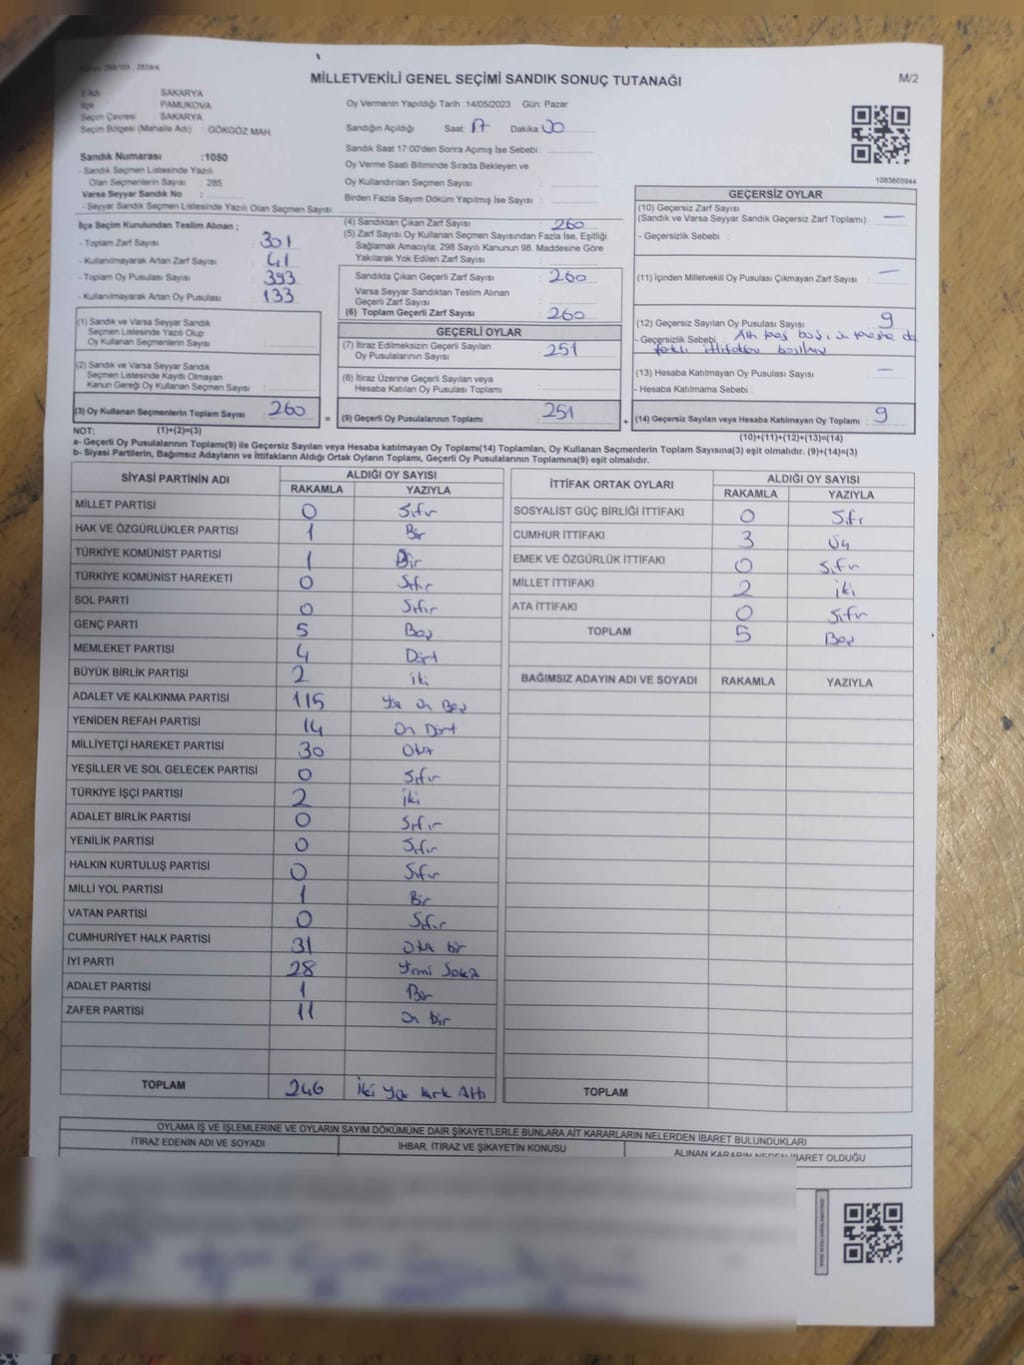 MİLLETVEKİLİ GENEL SEÇİMİ SANDIK SONUÇ TUTANAĞI
M/2
İl Adı : SAKARYA
İlçe : PAMUKOVA
Seçim Çevresi : SAKARYA
Seçim Bölgesi (Mahalle Adı) : GÖKGÖZ MAH.
Oy Vermenin Yapıldığı Tarih :14/05/2023 Gün: Pazar
Sandığın Açıldığı Saat 17 Dakika 00
Sandık Saat 17:00'den Sonra Açımış İse Sebebi :
Oy Verme Saati Bitiminde Sırada Bekleyen ve
Oy Kullandırılan Seçmen Sayısı :
Birden Fazla Sayım Döküm Yapılmış İse Sayısı :
1083605944
Sandık Numarası :1050
- Sandık Seçmen Listesinde Yazılı
Olan Seçmenlerin Sayısı : 285
Varsa Seyyar Sandık No :
- Seyyar Sandık Seçmen Listesinde Yazılı Olan Seçmen Sayısı:
İlçe Seçim Kurulundan Teslim Alınan ;
- Toplam Zarf Sayısı : 301
- Kullanılmayarak Artan Zarf Sayısı : 41
- Toplam Oy Pusulası Sayısı : 393
- Kullanılmayarak Artan Oy Pusulası : 133
(1) Sandık ve Varsa Seyyar Sandık
Seçmen Listesinde Yazılı Olup
Oy Kullanan Seçmenlerin Sayısı :
(2) Sandık ve Varsa Seyyar Sandık
Seçmen Listesinde Kayıtlı Olmayan
Kanun Gereği Oy Kullanan Seçmen Sayısı :
(3) Oy Kullanan Seçmenlerin Toplam Sayısı : 260
(4) Sandıktan Çıkan Zarf Sayısı : 260
(5) Zarf Sayısı Oy Kullanan Seçmen Sayısından Fazla İse, Eşitliği
Sağlamak Amacıyla; 298 Sayılı Kanunun 98. Maddesine Göre
Yakılarak Yok Edilen Zarf Sayısı :
Sandıkta Çıkan Geçerli Zarf Sayısı : 260
Varsa Seyyar Sandıktan Teslim Alınan
Geçerli Zarf Sayısı :
(6) Toplam Geçerli Zarf Sayısı : 260
GEÇERLİ OYLAR
(7) İtiraz Edilmeksizin Geçerli Sayılan
Oy Pusulalarının Sayısı : 251
(8) İtiraz Üzerine Geçerli Sayılan veya
Hesaba Katılan Oy Pusulası Toplamı :
= (9) Geçerli Oy Pusulalarının Toplamı : 251
GEÇERSİZ OYLAR
(10) Geçersiz Zarf Sayısı
(Sandık ve Varsa Seyyar Sandık Geçersiz Zarf Toplamı) : —
- Geçersizlik Sebebi :
(11) İçinden Milletvekili Oy Pusulası Çıkmayan Zarf Sayısı : —
(12) Geçersiz Sayılan Oy Pusulası Sayısı : 9
- Geçersizlik Sebebi :
(13) Hesaba Katılmayan Oy Pusulası Sayısı : —
- Hesaba Katılmama Sebebi :
+ (14) Geçersiz Sayılan veya Hesaba Katılmayan Oy Toplamı : 9
NOT: (1)+(2)=(3)
(10)+(11)+(12)+(13)=(14)
a- Geçerli Oy Pusulalarının Toplamı(9) ile Geçersiz Sayılan veya Hesaba katılmayan Oy Toplamı(14) Toplamları, Oy Kullanan Seçmenlerin Toplam Sayısına(3) eşit olmalıdır. (9)+(14)=(3)
b- Siyasi Partilerin, Bağımsız Adayların ve İttifakların Aldığı Ortak Oyların Toplamı, Geçerli Oy Pusulalarının Toplamına(9) eşit olmalıdır.
SİYASİ PARTİNİN ADI ALDIĞI OY SAYISI
RAKAMLA YAZIYLA
MİLLET PARTİSİ 0 Sıfır
HAK VE ÖZGÜRLÜKLER PARTİSİ 1 Bir
TÜRKİYE KOMÜNİST PARTİSİ 1 Bir
TÜRKİYE KOMÜNİST HAREKETİ 0 Sıfır
SOL PARTİ 0 Sıfır
GENÇ PARTİ 5 Beş
MEMLEKET PARTİSİ 4 Dört
BÜYÜK BİRLİK PARTİSİ 2 iki
ADALET VE KALKINMA PARTİSİ 115 Yüz On Beş
YENİDEN REFAH PARTİSİ 14 On Dört
MİLLİYETÇİ HAREKET PARTİSİ 30 Otuz
YEŞİLLER VE SOL GELECEK PARTİSİ 0 Sıfır
TÜRKİYE İŞÇİ PARTİSİ 2 iki
ADALET BİRLİK PARTİSİ 0 Sıfır
YENİLİK PARTİSİ 0 Sıfır
HALKIN KURTULUŞ PARTİSİ 0 Sıfır
MİLLİ YOL PARTİSİ 1 Bir
VATAN PARTİSİ 0 Sıfır
CUMHURİYET HALK PARTİSİ 31 Otuz bir
İYİ PARTİ 28 Yirmi Sekiz
ADALET PARTİSİ 1 Bir
ZAFER PARTİSİ 11 On bir
TOPLAM 246 İki Yüz kırk Altı
İTTİFAK ORTAK OYLARI ALDIĞI OY SAYISI
RAKAMLA YAZIYLA
SOSYALİST GÜÇ BİRLİĞİ İTTİFAKI 0 Sıfır
CUMHUR İTTİFAKI 3 Üç
EMEK VE ÖZGÜRLÜK İTTİFAKI 0 Sıfır
MİLLET İTTİFAKI 2 iki
ATA İTTİFAKI 0 Sıfır
TOPLAM 5 Beş
BAĞIMSIZ ADAYIN ADI VE SOYADI RAKAMLA YAZIYLA
TOPLAM
OYLAMA İŞ VE İŞLEMLERİNE VE OYLARIN SAYIM DÖKÜMÜNE DAİR ŞİKAYETLERLE BUNLARA AİT KARARLARIN NELERDEN İBARET BULUNDUKLARI
İTİRAZ EDENİN ADI VE SOYADI
İHBAR, İTİRAZ VE ŞİKAYETİN KONUSU
ALINAN KARARIN NEDEN İBARET OLDUĞU